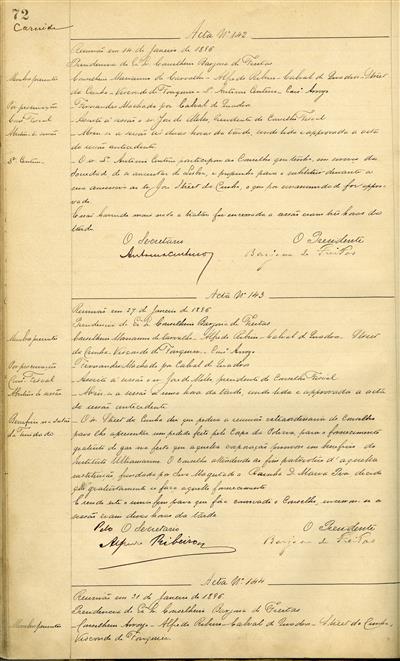 72
Carnide
Acta Nº 142
Reunião em 14 de Janeiro de 1896
Presidencia do Ex. Sr. Conselheiro Barjona de Freitas
Membros presentes Conselheiro Marianno de Carvalho - Alfredo Ribeiro - Cabral de Quadros - Street
da Cunha - Visconde de - Dr. Antonio Centeno - Arroyo
Por procuração - Fernandes Machado por Cabral de Quadros
Cons. Fiscal - Assiste á sessão o sr. José de Mello, Presidente do Conselho Fiscal
Abertura da sessão - Abriu-se a sessão ás duas horas da tarde, sendo lida e approvada a acta
da sessão antecedente
Dr. Centeno - O sr. Dr. Antonio Centeno participou ao Conselho que tendo, em serviço da
Sociedade de se ausentar de Lisboa, e propunha para o substituir durante a
sua ausencia ao sr. José Street da Cunha, o que por unanimidade foi appro-
vado.
E não havendo mais nada a tratar foi encerrada a sessão eram tres horas da
tarde
O Secretario O Presidente
Antonio Centeno Barjona de Freitas
Acta Nº 143
Reunião em 27 de Janeiro de 1896
Presidencia do Ex. Sr. Conselheiro Barjona de Freitas
Membros presentes Conselheiro Marianno de Carvalho - Alfredo Ribeiro - Cabral de Quadros - Street
da Cunha - Visconde de - Arroyo
Por procuração - Fernandes Machado por Cabral de Quadros
Cons. Fiscal - Assiste á sessão o sr. José de Mello, presidente do Conselho Fiscal
Abertura da sessão - Abriu-se a sessão á uma hora da tarde, sendo lida e approvada a acta
da sessão antecedente
- O sr. Street da Cunha diz que pedira a reunião extraordinaria do Conselho
para lhe apresentar um pedido feito pelo para o fornecimento
gratuito de gaz na festa que aquella promove em beneficio do
Instituto Ultramarino. O Conselho attendendo ao fim patriotico d'aquella
instituição fundada por Sua Magestade a Rainha D. Maria Pia decide
gratuitamente se faça aquelle fornecimento
E sendo este o unico fim para que foi convocado o Conselho, encerrou-se a
sessão eram duas horas da tarde
Pelo O Secretario O Presidente
Alfredo Ribeiro Barjona de Freitas
Acta Nº 144
Reunião em 31 de Janeiro de 1896
Presidencia do Ex. Sr. Conselheiro Barjona de Freitas
Membros presentes Conselheiro Arroyo - Alfredo Ribeiro - Cabral de Quadros - Street da Cunha -
Visconde de